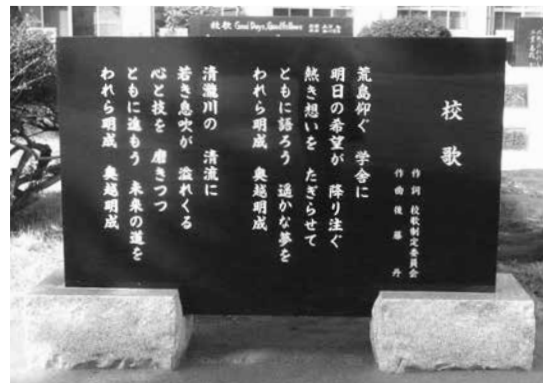 校歌
作詞 校歌制定委員会
作曲 後藤 丹
荒島仰ぐ 学舎に
明日の希望が 降り注ぐ
熱き想いを たぎらせて
ともに語ろう 遥かな夢を
われら明成 奥越明成
清瀧川の 清流に
若き息吹が 溢れくる
心と技を 磨きつつ
ともに進もう 未来の道を
われら明成 奥越明成
校歌 Good Days, Good Fellows